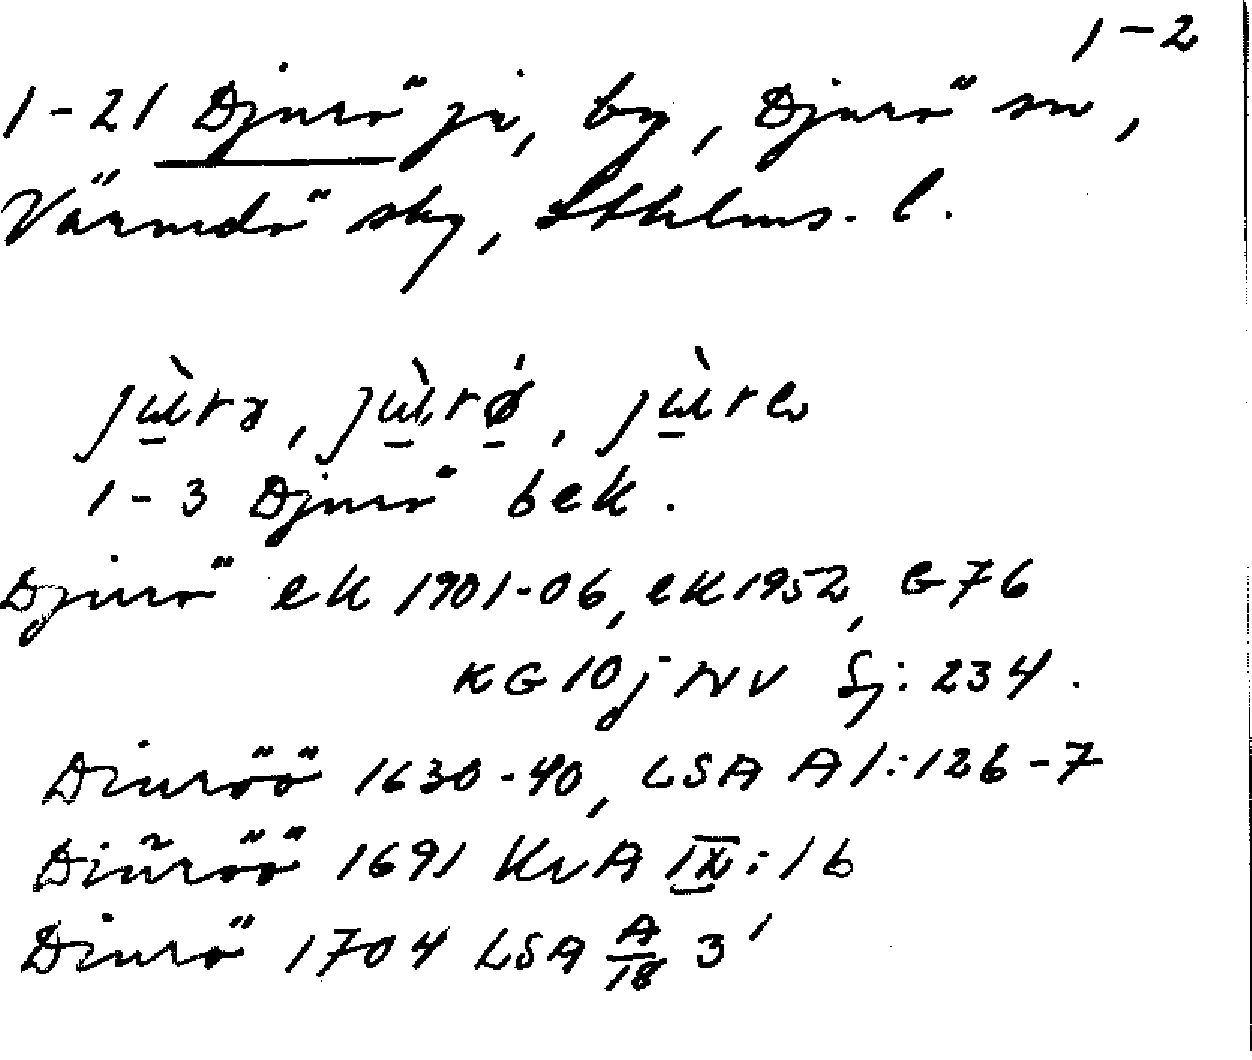 1-2
1-21 Djurö jr, by, Djurö sn,
Värmdö skg, Sthlms. l.
jùrə, jùrǿ, jùre
1-3 Djurö bek.
Djurö ek 1901-06, ek 1952, G76
KG 10j NV Sj: 234.
Diuröö 1630-40, LSA A1:126-7
Diŭröö 1691 KrA IX:1b
Diurö 1704 LSA A/18 3'